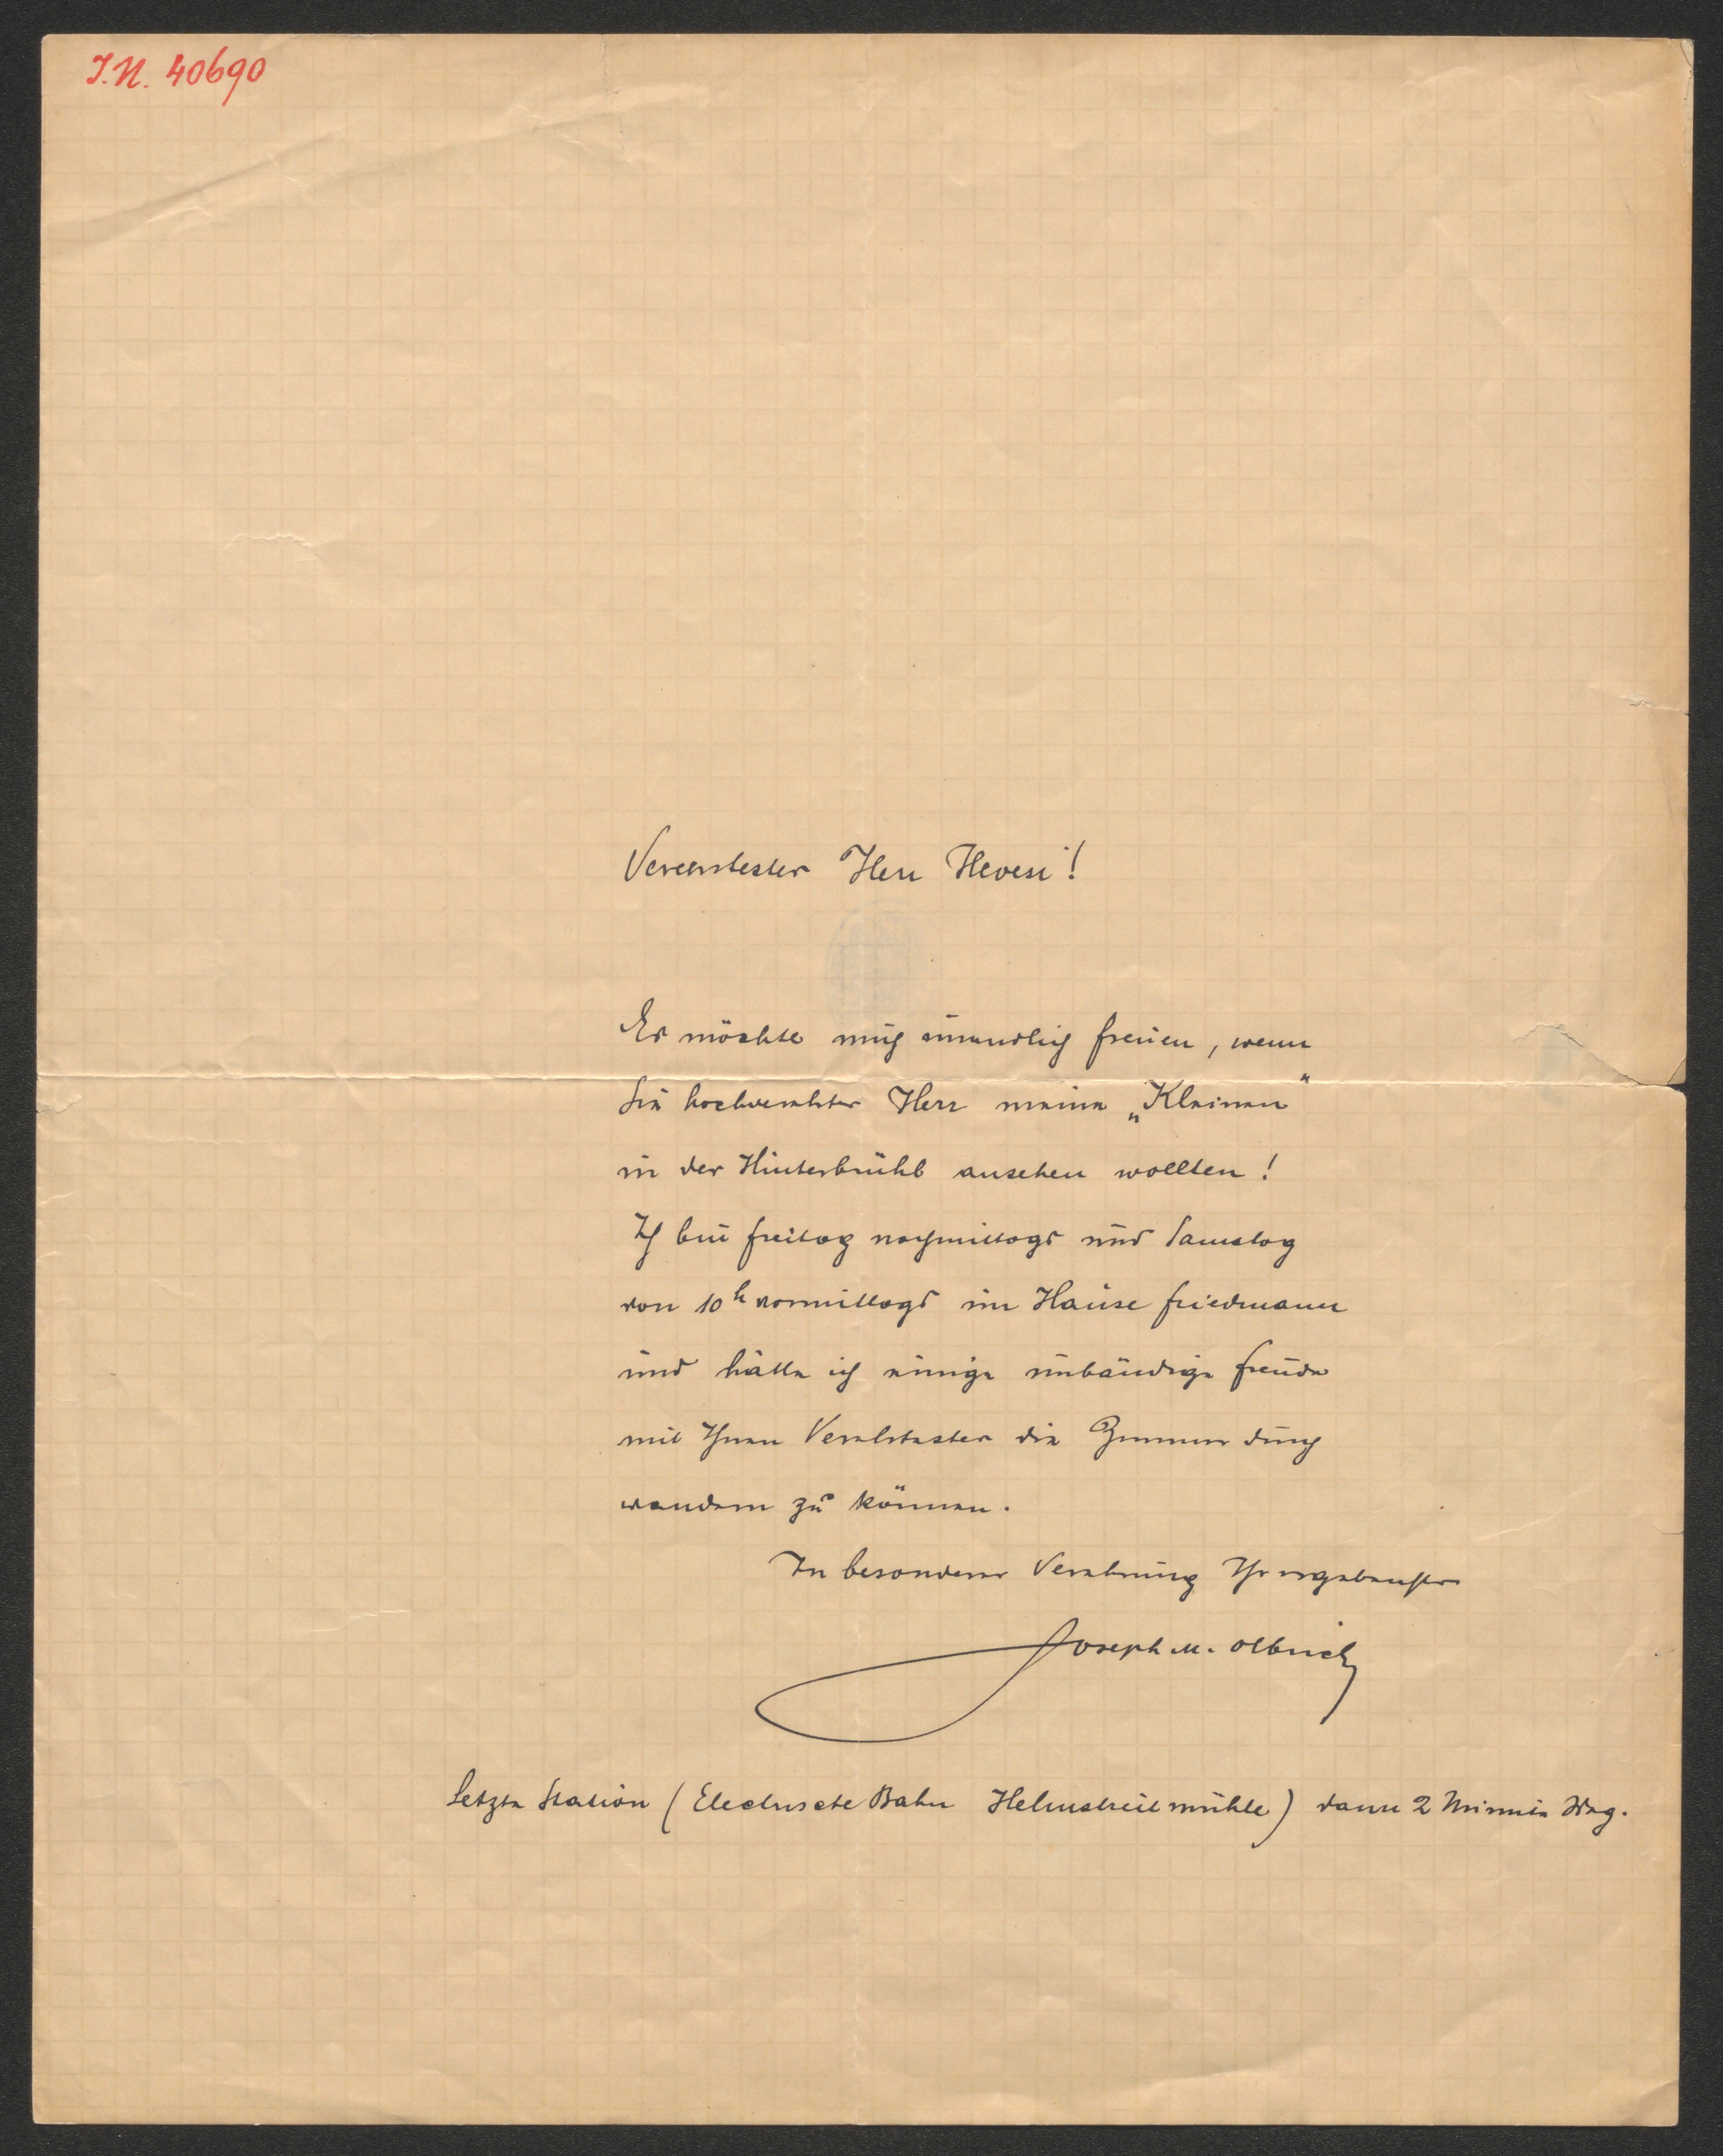 I.N. 40690
Verehrtester Herr Hevesi!
Es möchte mich unendlich freuen, wenn
Sie hochverehrter Herr meine „Kleinen“
in der Hinterbrühl ansehen wollten!
Ich bin freitag nachmittags und Samstag
von 10h vormittags im Hause friedmann
und hätte ich einige unbändige freude
mit Ihnen Verehrtester die Zimmer durch
wandern zu können.
In besonderer Verehrung Ihr ergebenster
Joseph M. Olbrich
Letzte Station (Electrische Bahn Helmstreitmühle) dann 2 Minuten Weg.